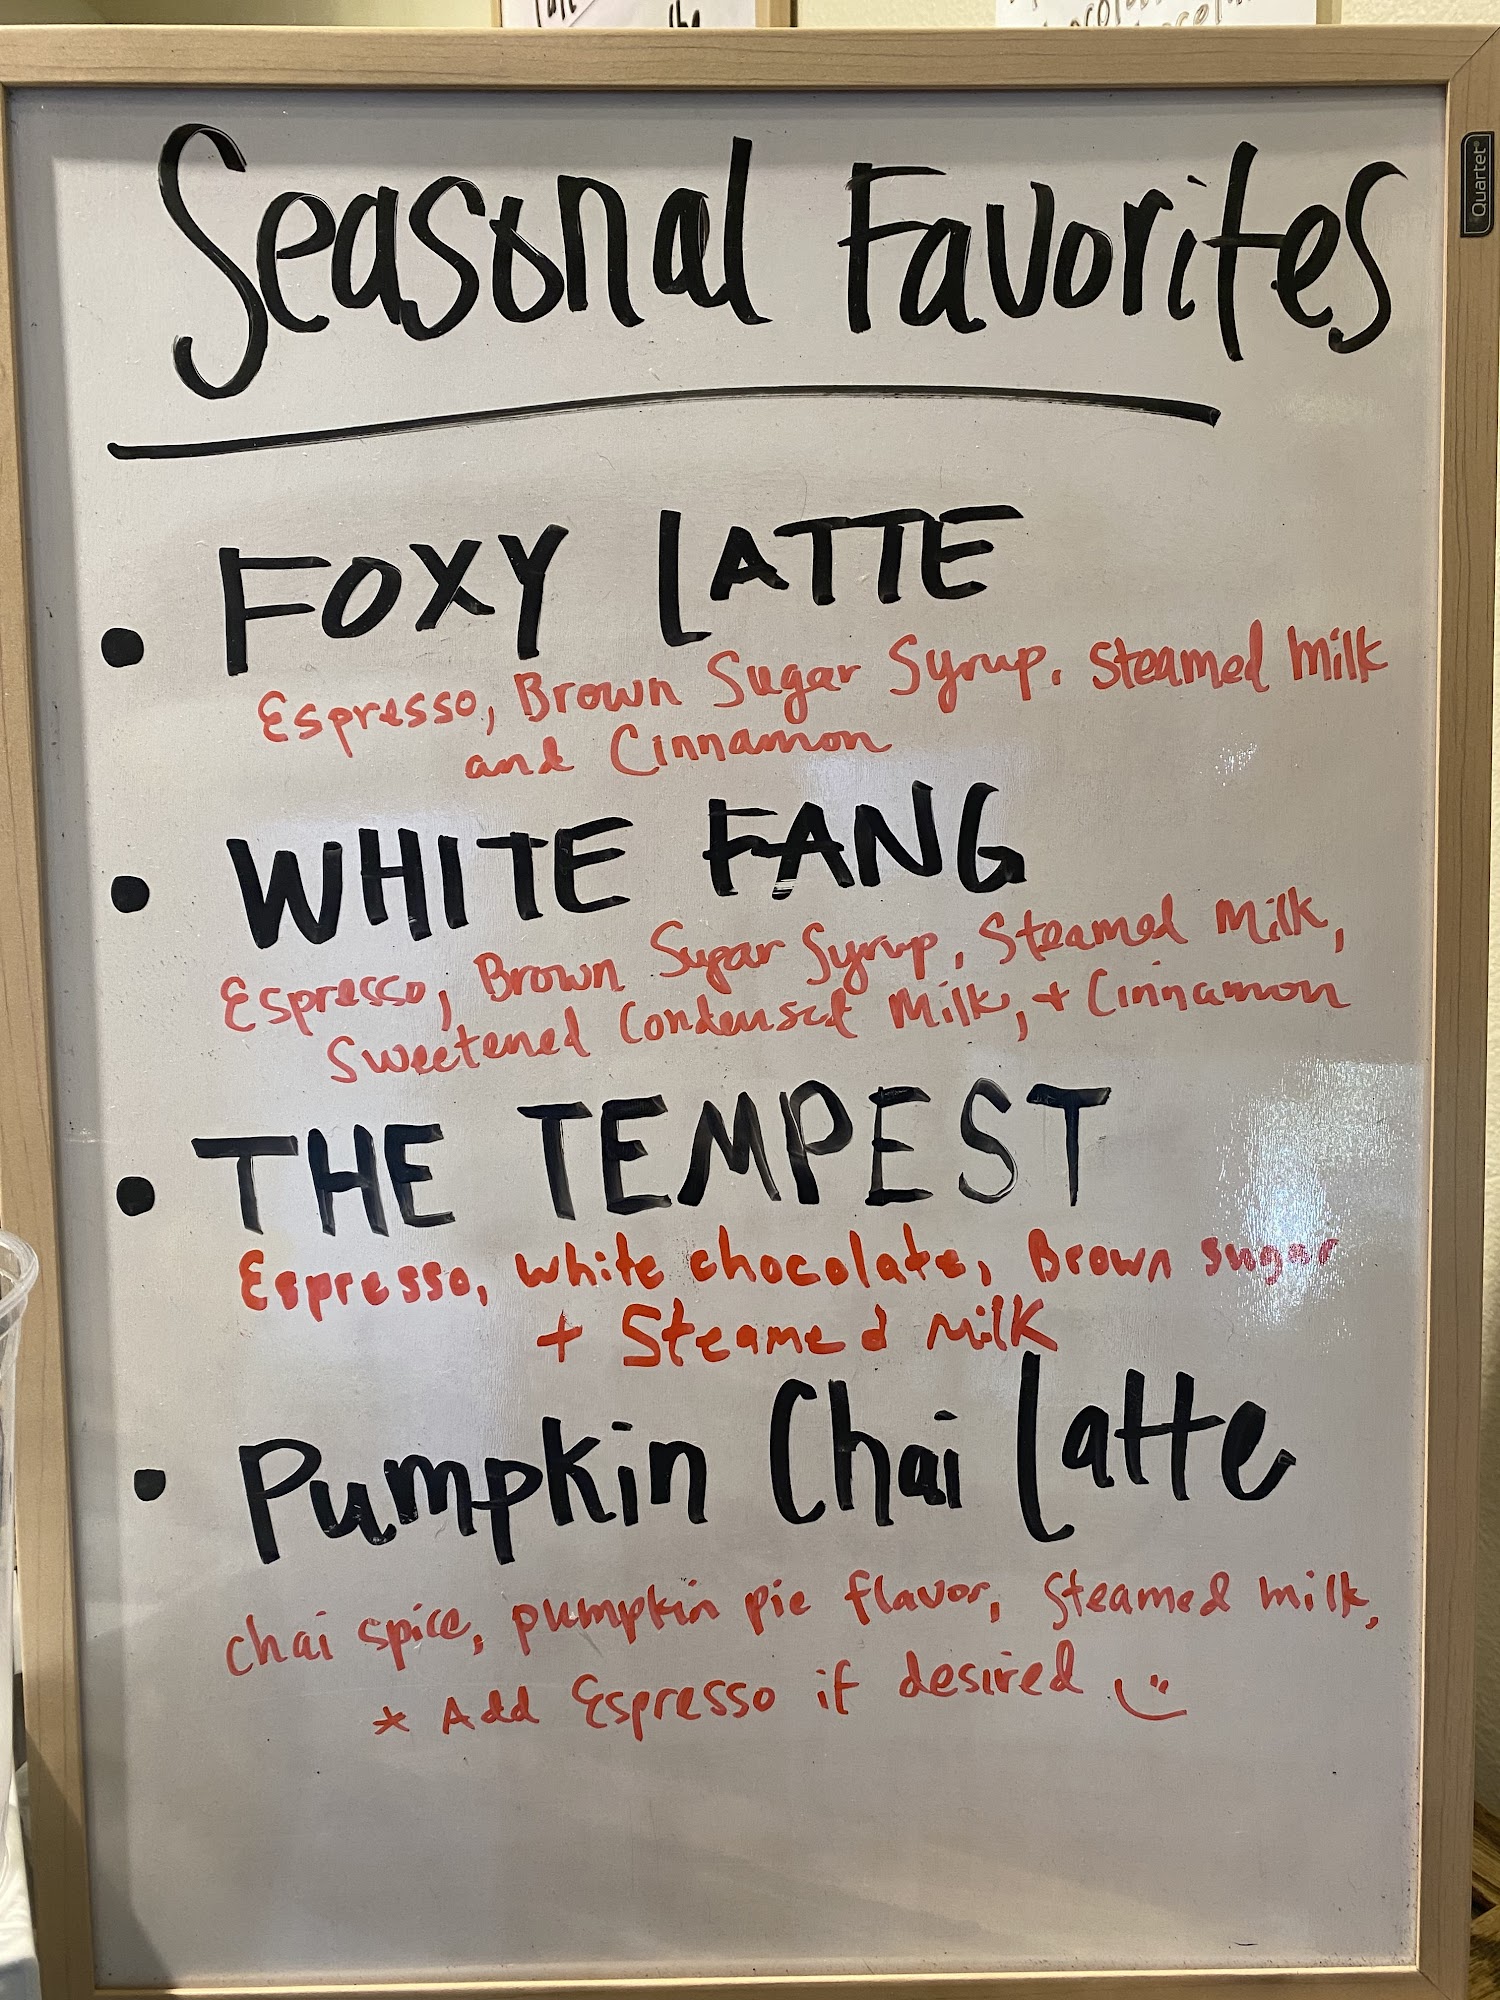 Seasonal Favorites
Quartet
• FOXY LATTE
Espresso, Brown Sugar Syrup, Steamed Milk
and Cinnamon
• WHITE FANG
Espresso, Brown Sugar Syrup, Steamed Milk,
Sweetened Condensed Milk, + Cinnamon
• THE TEMPEST
Espresso, white chocolate, Brown sugar
+ Steamed Milk
• Pumpkin Chai Latte
chai spice, pumpkin pie flavor, steamed milk,
* Add Espresso if desired